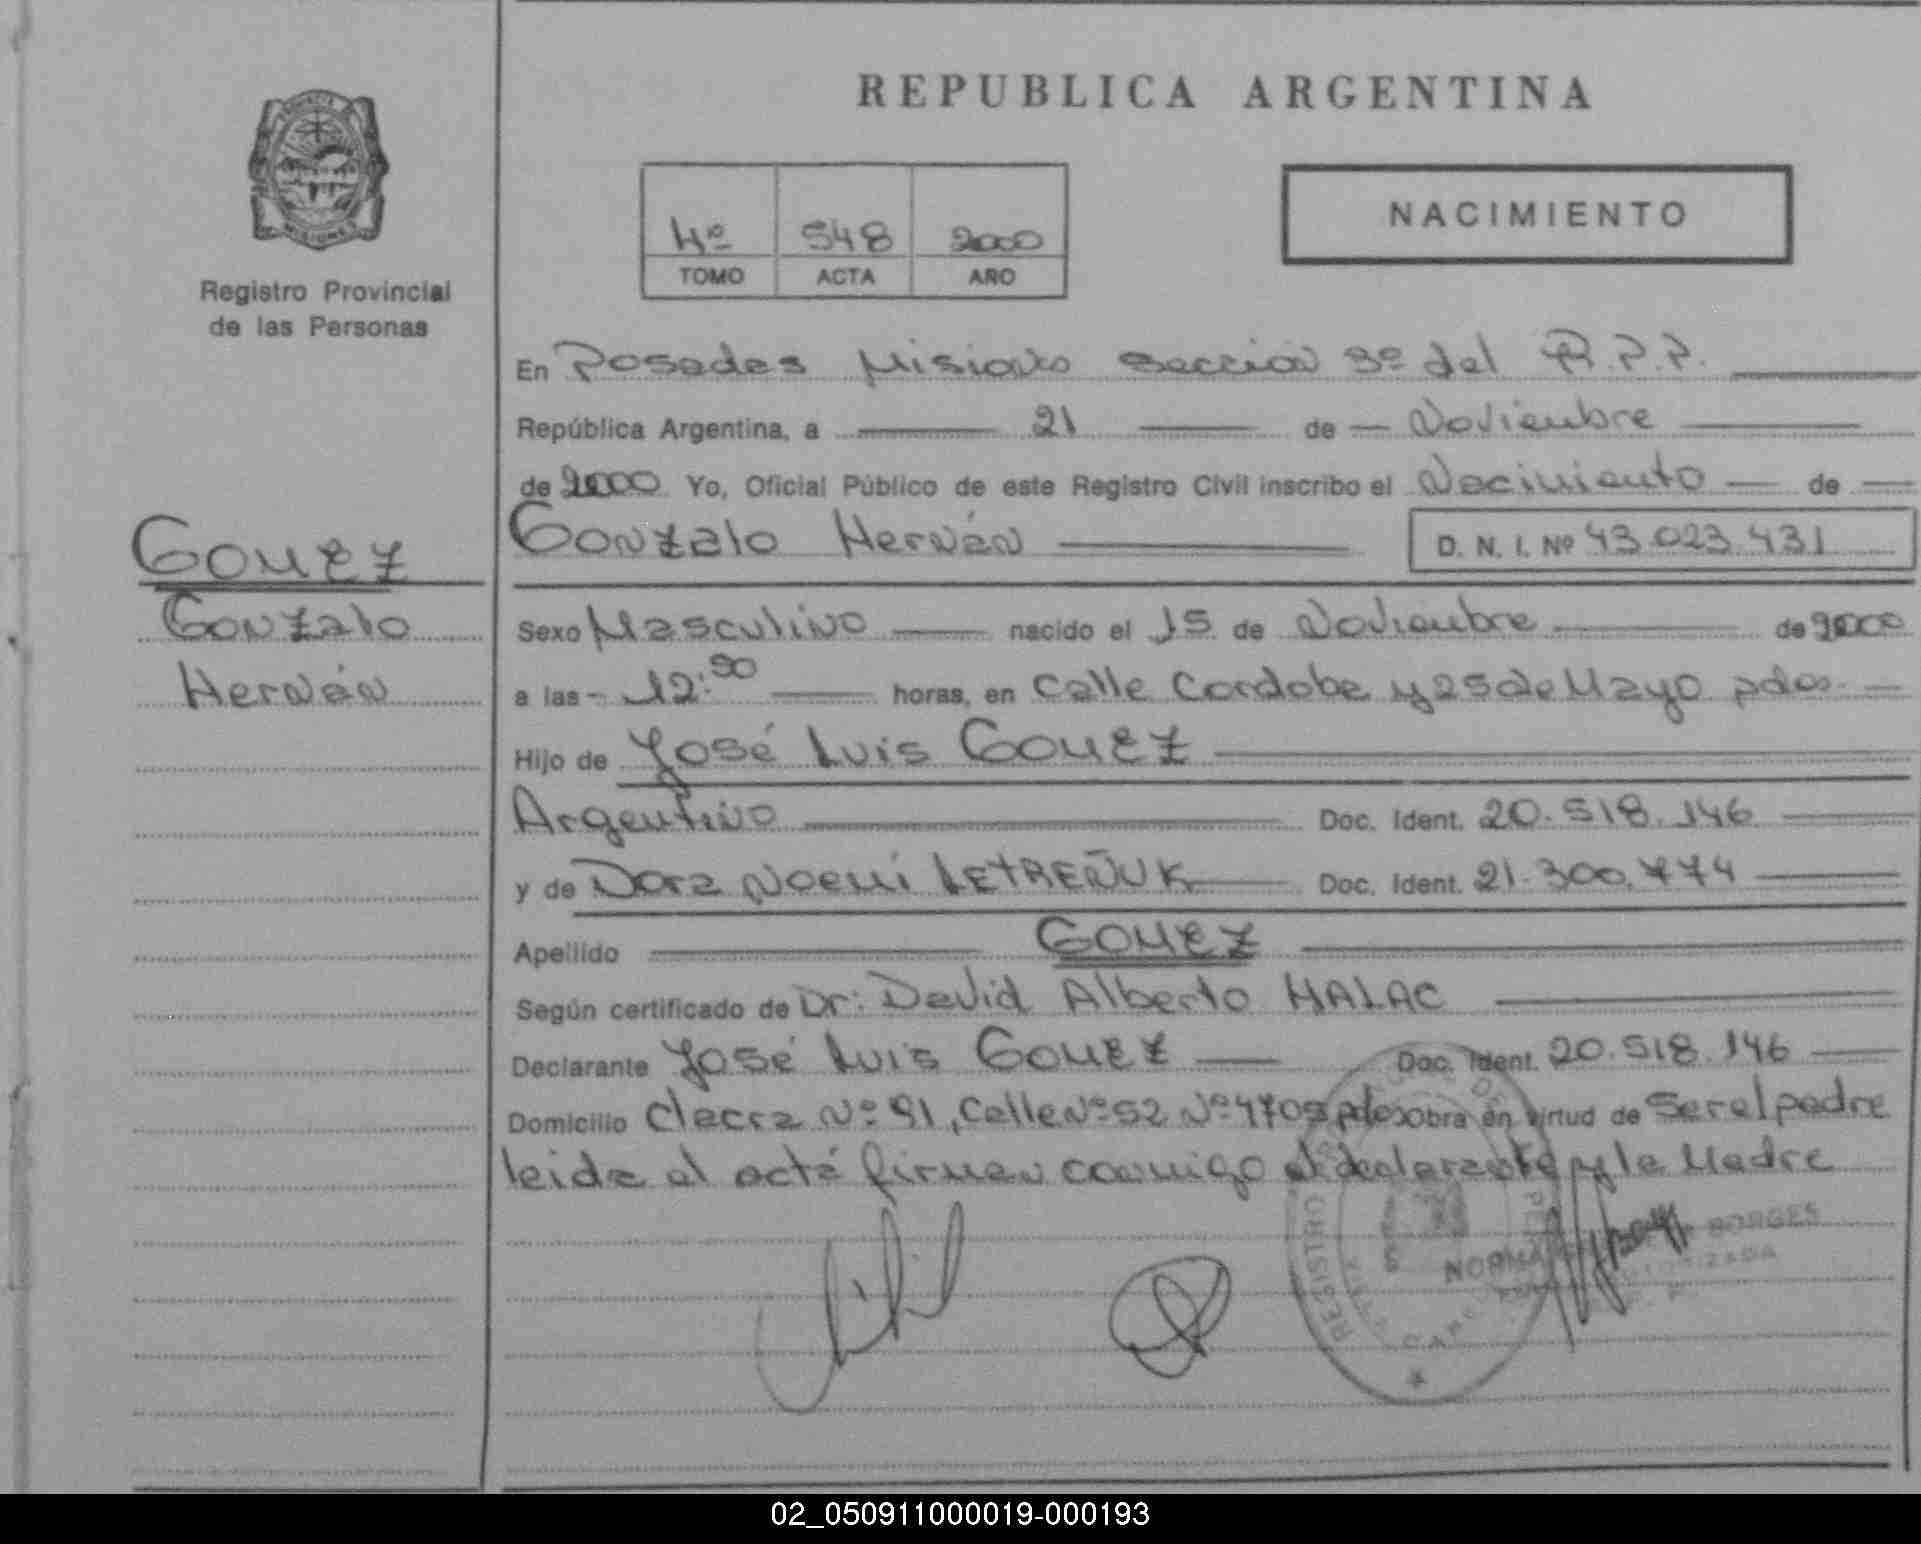 REPUBLICA ARGENTINA
NACIMIENTO
4º 548 2000
TOMO ACTA AÑO
Registro Provincial
de las Personas
En Posadas Misiones sección 3º del R.P.P.
República Argentina, a 21 de Noviembre
de 2000 Yo, Oficial Público de este Registro Civil inscribo el Nacimiento de
GOMEZ
Gonzalo
Hernán
Gonzalo Hernán D. N. I. Nº 43.023.431
Sexo Masculino nacido el 15 de Noviembre de 2000
a las 12: horas, en Calle Cordoba y 25 de Mayo pdas.
Hijo de José Luis GOMEZ
Argentino Doc. Ident. 20.518.146
y de Dora Noemí LETREÑUK Doc. Ident. 21.300.774
Apellido GOMEZ
Según certificado de Dr: David Alberto HALAC
Declarante José Luis GOMEZ Doc. Ident. 20.518.146
Domicilio Chacra Nº Calle Nº 52 Nº pdas obra en virtud de Ser el padre
leida el acta firman conmigo el declarante y la Madre
REGISTRO
NORMA BORGES
02_050911000019-000193